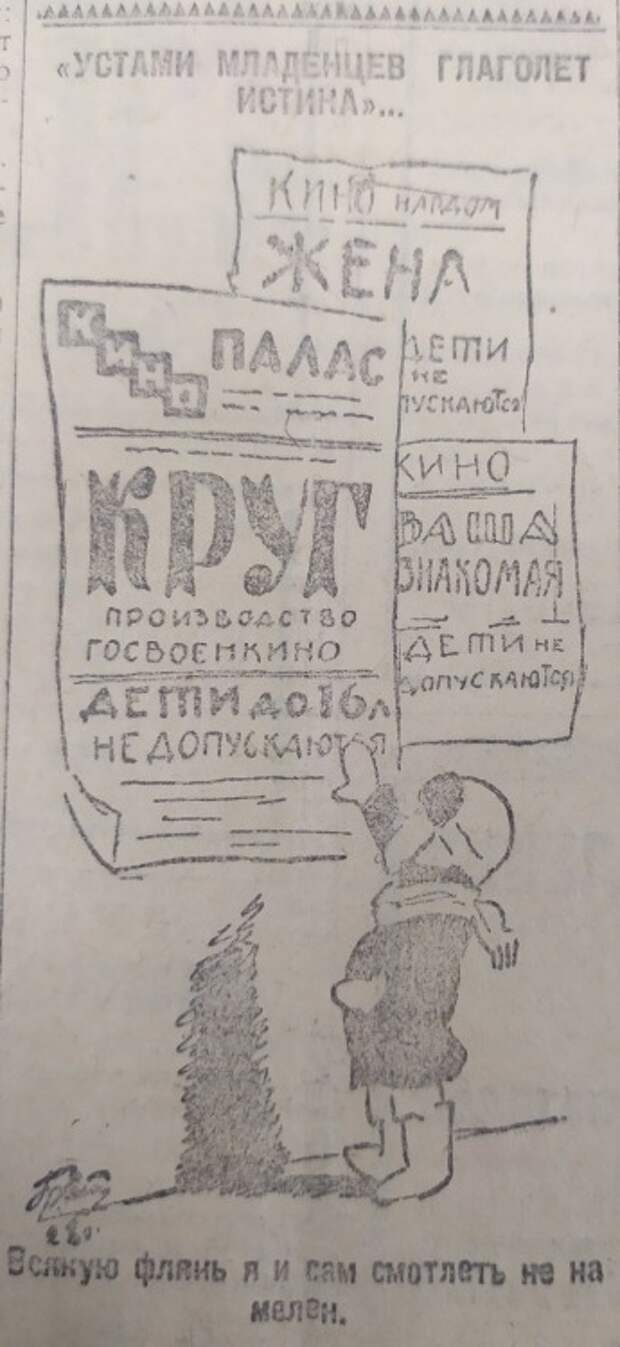 «УСТАМИ МЛАДЕНЦЕВ ГЛАГОЛЕТ
ИСТИНА»...
КИНО НАРДОМ
ЖЕНА
ДЕТИ
НЕ
ПУСКАЮТСЯ
КИНО
ПАЛАС
КРУГ
ПРОИЗВОДСТВО
ГОСВОЕНКИНО
ДЕТИ ДО 16 Л
НЕ ДОПУСКАЮТСЯ
КИНО
ВАША
ЗНАКОМАЯ
ДЕТИ НЕ
ДОПУСКАЮТСЯ
28
Всякую флянь я и сам смотлеть не на
мелен.